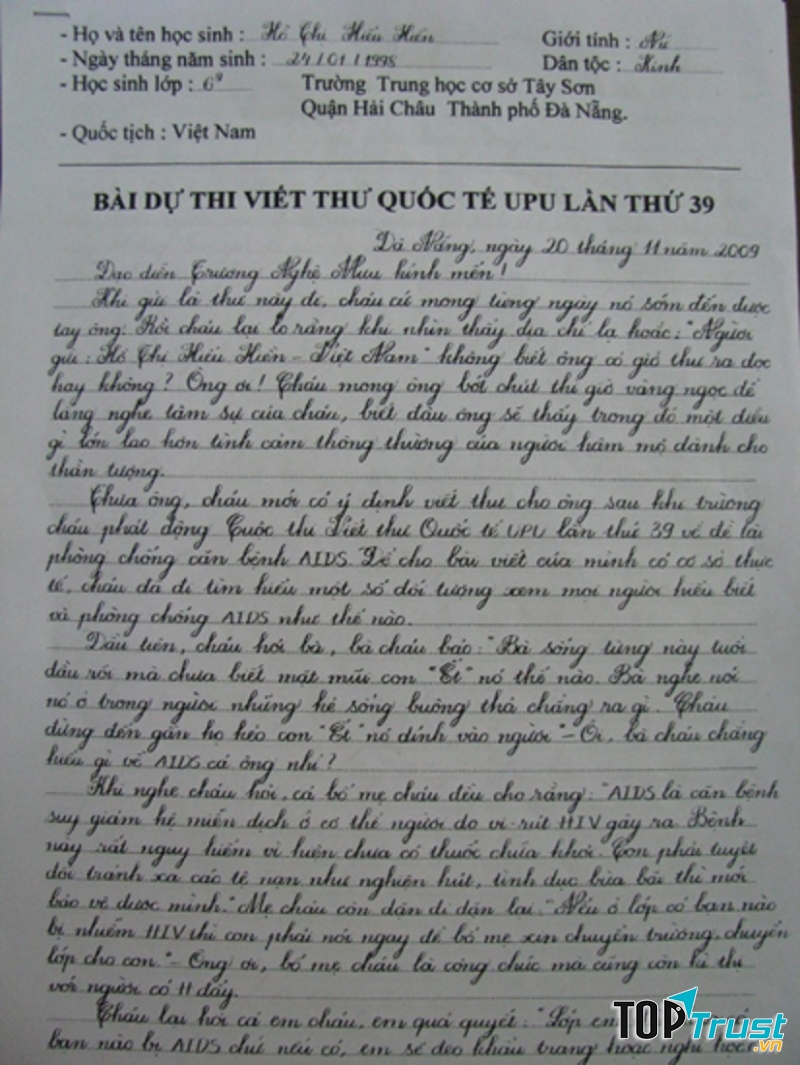 - Họ và tên học sinh : Hồ Thị Hiếu Hiền Giới tính : Nữ
- Ngày tháng năm sinh : 24/01/1998 Dân tộc : Kinh
- Học sinh lớp : 6⁹ Trường Trung học cơ sở Tây Sơn
Quận Hải Châu Thành phố Đà Nẵng.
- Quốc tịch : Việt Nam
BÀI DỰ THI VIẾT THƯ QUỐC TẾ UPU LẦN THỨ 39
Đà Nẵng, ngày 20 tháng 11 năm 2009
Đạo diễn Trương Nghệ Mưu kính mến!
Khi gửi lá thư này đi, cháu cứ mong từng ngày nó sớm đến được
tay ông. Rồi cháu lại lo rằng khi nhìn thấy địa chỉ lạ hoắc: "Người
gửi: Hồ Thị Hiếu Hiền - Việt Nam" không biết ông có giở thư ra đọc
hay không? Ông ơi! Cháu mong ông bớt chút thì giờ vàng ngọc để
lắng nghe tâm sự của cháu, biết đâu ông sẽ thấy trong đó một điều
gì lớn lao hơn tình cảm thông thường của người hâm mộ dành cho
thần tượng.
Thưa ông, cháu mới có ý định viết thư cho ông sau khi trường
cháu phát động Cuộc thi Viết thư Quốc tế UPU lần thứ 39 về đề tài
phòng chống căn bệnh AIDS. Để cho bài viết của mình có cơ sở thực
tế, cháu đã đi tìm hiểu một số đối tượng xem mọi người hiểu biết
và phòng chống AIDS như thế nào.
Đầu tiên, cháu hỏi bà, bà cháu bảo: "Bà sống từng này tuổi
đầu rồi mà chưa biết mặt mũi con "Ết" nó thế nào. Bà nghe nói
nó ở trong người những kẻ sống buông thả chẳng ra gì. Cháu
đừng đến gần họ kẻo con "Ết" nó dính vào người" - Ôi, bà cháu chẳng
hiểu gì về AIDS cả ông nhỉ?
Khi nghe cháu hỏi, cả bố mẹ cháu đều cho rằng: "AIDS là căn bệnh
suy giảm hệ miễn dịch ở cơ thể người do vi-rút HIV gây ra. Bệnh
này rất nguy hiểm vì hiện chưa có thuốc chữa khỏi. Con phải tuyệt
đối tránh xa các tệ nạn như nghiện hút, tình dục bừa bãi thì mới
bảo vệ được mình." Mẹ cháu còn dặn đi dặn lại: "Nếu ở lớp có bạn nào
bị nhiễm HIV thì con phải nói ngay để bố mẹ xin chuyển trường, chuyển
lớp cho con" - Ông ơi, bố mẹ cháu là công chức mà cũng còn kì thị
với người có H đấy.
Cháu lại hỏi cả em cháu, em quả quyết: "Lớp em
bạn nào bị AIDS chứ nếu có, em sẽ đeo khẩu trang hoặc nghỉ học
TOP Trust.vn